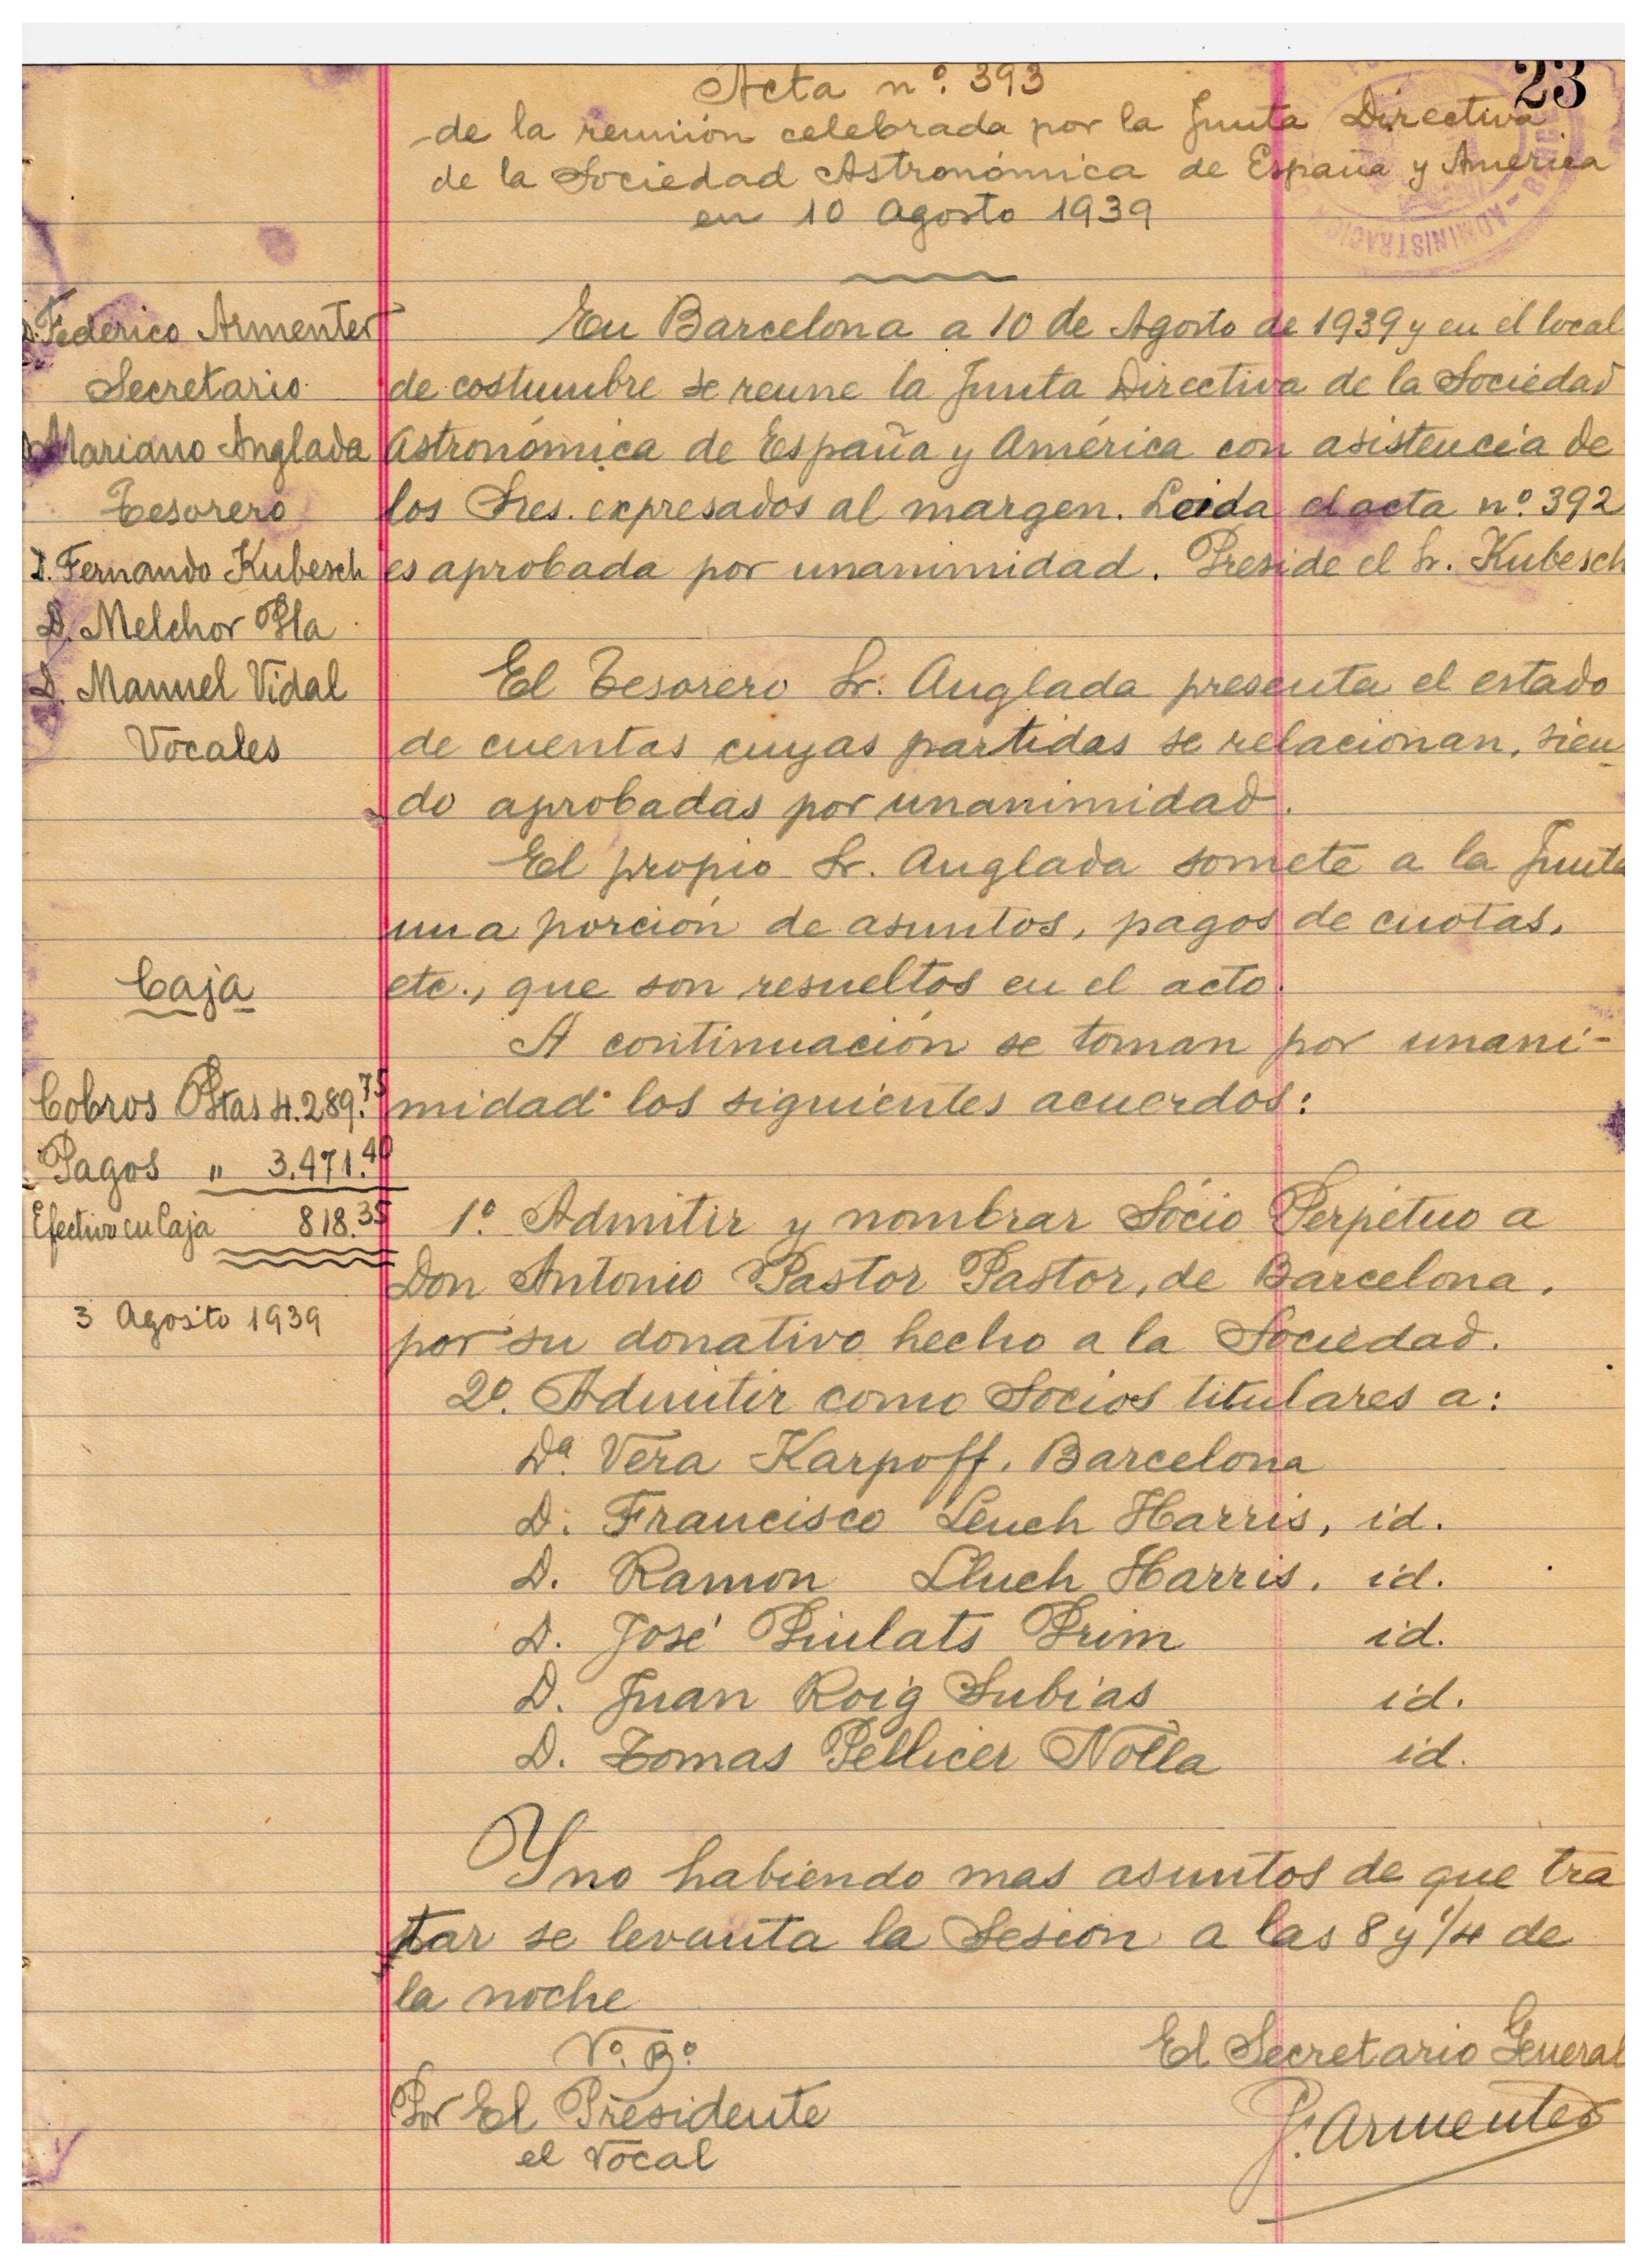 23
Acta nº. 393
de la reunión celebrada por la Junta Directiva
de la Sociedad Astronómica de España y América
en 10 Agosto 1939
D. Federico Armenter
Secretario
D. Mariano Anglada
Tesorero
D. Fernando Kubesch
D. Melchor Pla
D. Manuel Vidal
Vocales
En Barcelona a 10 de Agosto de 1939 y en el local
de costumbre se reune la Junta Directiva de la Sociedad
Astronómica de España y América con asistencia de
los Sres. expresados al margen. Leida el acta nº. 392
es aprobada por unanimidad. Preside el Sr. Kubesch
El Tesorero Sr. Anglada presenta el estado
de cuentas cuyas partidas se relacionan, sien
do aprobadas por unanimidad.
El propio Sr. Anglada somete a la Junta
una porción de asuntos, pagos de cuotas,
etc., que son resueltos en el acto.
A continuación se toman por unani-
midad los siguientes acuerdos:
Caja
Cobros Ptas 4.289.75
Pagos " 3.471.40
Efectivo en Caja 818.35
3 Agosto 1939
1º. Admitir y nombrar Sócio Perpétuo a
Don Antonio Pastor Pastor, de Barcelona,
por su donativo hecho a la Sociedad.
2º. Admitir como Socios titulares a:
Dª. Vera Karpoff. Barcelona
D. Francisco Lluch Harris, id.
D. Ramon Lluch Harris, id.
D. José Piulats Prim id.
D. Juan Roig Subias id.
D. Tomas Pellicer Nolla id.
Y no habiendo mas asuntos de que tra
tar se levanta la Sesion a las 8 y 1/4 de
la noche
Vº. Bº.
Por El Presidente
el Vocal
El Secretario General
F. Armenter
ADMINISTRACION